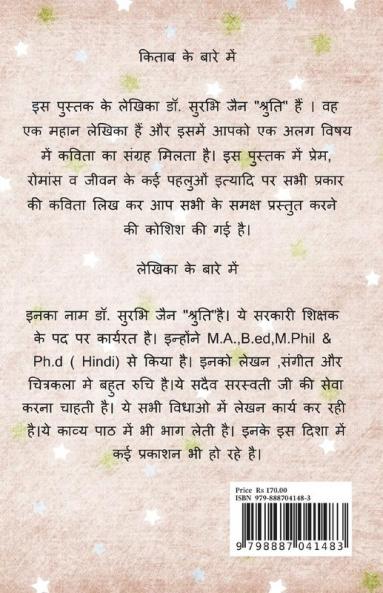 किताब के बारे में
इस पुस्तक के लेखिका डॉ. सुरभि जैन "श्रुति" हैं । वह
एक महान लेखिका हैं और इसमें आपको एक अलग विषय
में कविता का संग्रह मिलता है। इस पुस्तक में प्रेम,
रोमांस व जीवन के कई पहलुओं इत्यादि पर सभी प्रकार
की कविता लिख कर आप सभी के समक्ष प्रस्तुत करने
की कोशिश की गई है।
लेखिका के बारे में
इनका नाम डॉ. सुरभि जैन "श्रुति"है। ये सरकारी शिक्षक
के पद पर कार्यरत है। इन्होंने M.A.,B.ed,M.Phil &
Ph.d ( Hindi) से किया है। इनको लेखन ,संगीत और
चित्रकला मे बहुत रुचि है।ये सदैव सरस्वती जी की सेवा
करना चाहती है। ये सभी विधाओ में लेखन कार्य कर रही
है।ये काव्य पाठ में भी भाग लेती है। इनके इस दिशा में
कई प्रकाशन भी हो रहे है।
Price Rs 170.00
ISBN 979-888704148-3
9 798887 041483